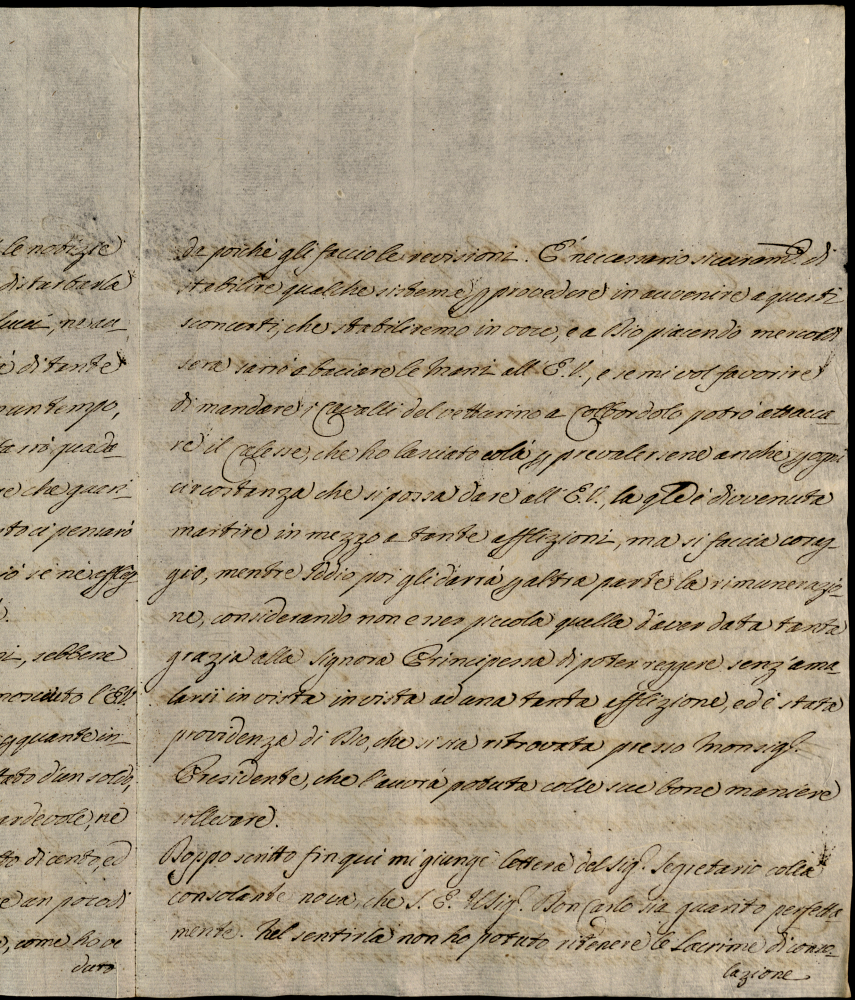 le notizie
disturbarla
lucci, ne au-
di tante
un tempo,
farò quada-
re che guari-
to ci pensarò
iò se ne afflig-
ni, sebbene
nosciuto l'E.V.
quante in-
tato d'un soldo,
ardevole, ne
to di cento, ed
e un poco di
, come ho ve
duto
da poiche gli faccio le revisioni. È neccessario sicuramᵉ. di
stabilire qualche sistema p provedere in avvenire a questi
sconcerti, che stabiliremo in voce, e a Dio piacendo mercoldì
sera sarò a baciare le Mani all'E.V., e se mi vol favorire
di mandare i Cavalli del vetturino a Colbordolo potrò attacca-
re il Calesse, che ho lasciato colà p prevalersene anche p ogni
circostanza che si possa dare all'E.V., la qle è divenuta
martire in mezzo a tante afflizioni, ma si faccia corag-
gio, mentre Iddio poi gli darrà p altra parte la rimunerazio-
ne, considerando non esser piccola quella d'aver data tanta
grazia alla Signora Principessa di poter reggere senz'ama-
larsi in vista in vista ad una tanta afflizione, ed è stata
providenza di Dio, che si sia ritrovata presso Monsigʳ.
Presidente, che l'auvrà potuta colle sue bone maniere
sollevare.
Doppo scritto fin qui mi giunge lettera del Sigʳ. Segretario colla
consolante nova, che S. E. Il Sigʳ. Don Carlo sia guarito perfetta-
mente. Nel sentirla non ho potuto ritenere le Lacrime di conso-
lazione